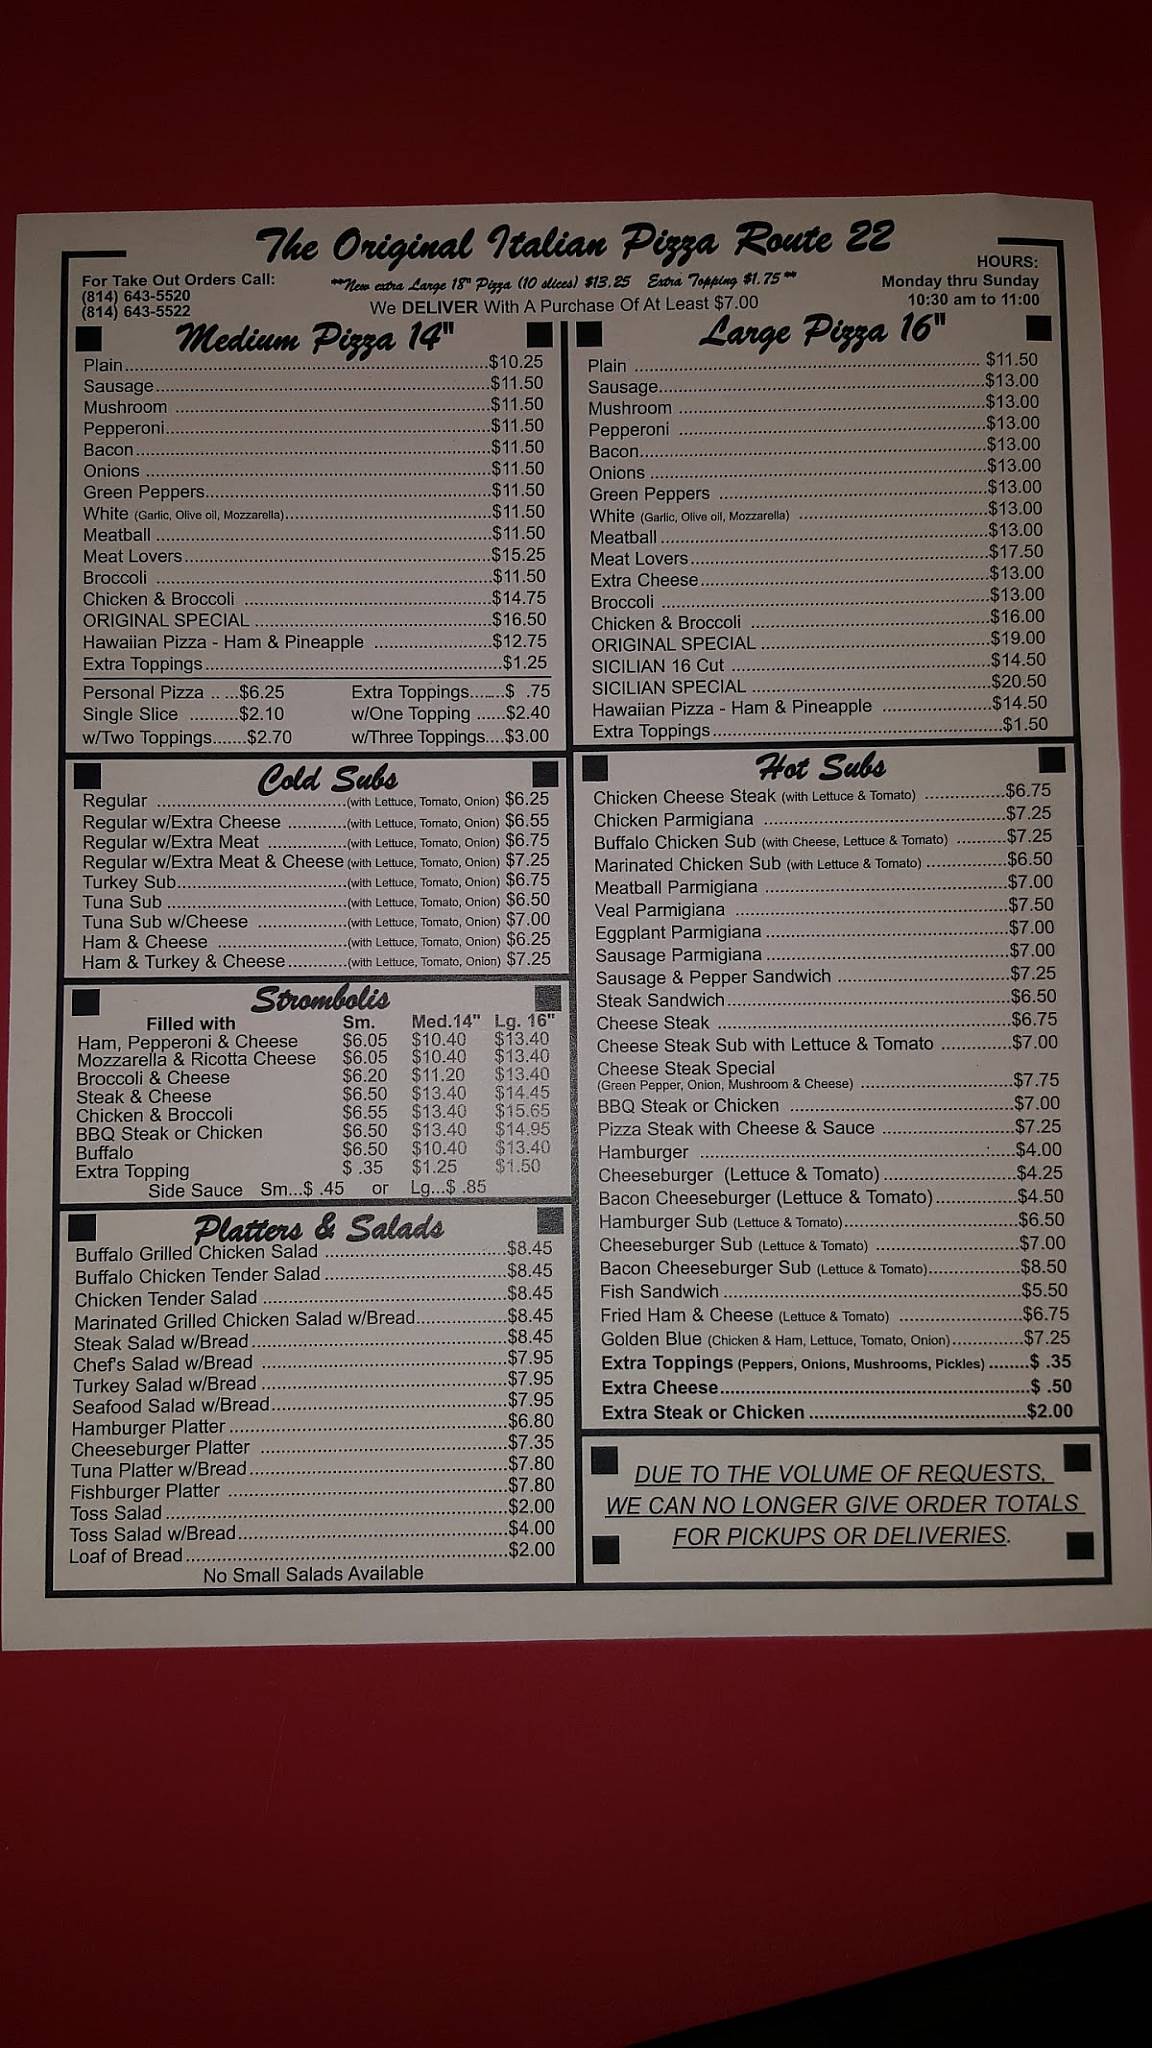 The Original Italian Pizza Route 22
For Take Out Orders Call:
(814) 643-5520
(814) 643-5522
**New extra Large 18" Pizza (10 slices) $13.25 Extra Topping $1.75**
We DELIVER With A Purchase Of At Least $7.00
HOURS:
Monday thru Sunday
10:30 am to 11:00
Medium Pizza 14"
Plain $10.25
Sausage $11.50
Mushroom $11.50
Pepperoni $11.50
Bacon $11.50
Onions $11.50
Green Peppers $11.50
White (Garlic, Olive oil, Mozzarella) $11.50
Meatball $11.50
Meat Lovers $15.25
Broccoli $11.50
Chicken & Broccoli $14.75
ORIGINAL SPECIAL $16.50
Hawaiian Pizza - Ham & Pineapple $12.75
Extra Toppings $1.25
Personal Pizza $6.25 Extra Toppings $ .75
Single Slice $2.10 w/One Topping $2.40
w/Two Toppings $2.70 w/Three Toppings $3.00
Large Pizza 16"
Plain $11.50
Sausage $13.00
Mushroom $13.00
Pepperoni $13.00
Bacon $13.00
Onions $13.00
Green Peppers $13.00
White (Garlic, Olive oil, Mozzarella) $13.00
Meatball $13.00
Meat Lovers $17.50
Extra Cheese $13.00
Broccoli $13.00
Chicken & Broccoli $16.00
ORIGINAL SPECIAL $19.00
SICILIAN 16 Cut $14.50
SICILIAN SPECIAL $20.50
Hawaiian Pizza - Ham & Pineapple $14.50
Extra Toppings $1.50
Cold Subs
Regular (with Lettuce, Tomato, Onion) $6.25
Regular w/Extra Cheese (with Lettuce, Tomato, Onion) $6.55
Regular w/Extra Meat (with Lettuce, Tomato, Onion) $6.75
Regular w/Extra Meat & Cheese (with Lettuce, Tomato, Onion) $7.25
Turkey Sub (with Lettuce, Tomato, Onion) $6.75
Tuna Sub (with Lettuce, Tomato, Onion) $6.50
Tuna Sub w/Cheese (with Lettuce, Tomato, Onion) $7.00
Ham & Cheese (with Lettuce, Tomato, Onion) $6.25
Ham & Turkey & Cheese (with Lettuce, Tomato, Onion) $7.25
Strombolis
Filled with Sm. Med.14" Lg. 16"
Ham, Pepperoni & Cheese $6.05 $10.40 $13.40
Mozzarella & Ricotta Cheese $6.05 $10.40 $13.40
Broccoli & Cheese $6.20 $11.20 $13.40
Steak & Cheese $6.50 $13.40 $14.45
Chicken & Broccoli $6.55 $13.40 $15.65
BBQ Steak or Chicken $6.50 $13.40 $14.95
Buffalo $6.50 $10.40 $13.40
Extra Topping $ .35 $1.25 $1.50
Side Sauce Sm...$ .45 or Lg...$ .85
Platters & Salads
Buffalo Grilled Chicken Salad $8.45
Buffalo Chicken Tender Salad $8.45
Chicken Tender Salad $8.45
Marinated Grilled Chicken Salad w/Bread $8.45
Steak Salad w/Bread $8.45
Chef's Salad w/Bread $7.95
Turkey Salad w/Bread $7.95
Seafood Salad w/Bread $7.95
Hamburger Platter $6.80
Cheeseburger Platter $7.35
Tuna Platter w/Bread $7.80
Fishburger Platter $7.80
Toss Salad $2.00
Toss Salad w/Bread $4.00
Loaf of Bread $2.00
No Small Salads Available
Hot Subs
Chicken Cheese Steak (with Lettuce & Tomato) $6.75
Chicken Parmigiana $7.25
Buffalo Chicken Sub (with Cheese, Lettuce & Tomato) $7.25
Marinated Chicken Sub (with Lettuce & Tomato) $6.50
Meatball Parmigiana $7.00
Veal Parmigiana $7.50
Eggplant Parmigiana $7.00
Sausage Parmigiana $7.00
Sausage & Pepper Sandwich $7.25
Steak Sandwich $6.50
Cheese Steak $6.75
Cheese Steak Sub with Lettuce & Tomato $7.00
Cheese Steak Special
(Green Pepper, Onion, Mushroom & Cheese) $7.75
BBQ Steak or Chicken $7.00
Pizza Steak with Cheese & Sauce $7.25
Hamburger $4.00
Cheeseburger (Lettuce & Tomato) $4.25
Bacon Cheeseburger (Lettuce & Tomato) $4.50
Hamburger Sub (Lettuce & Tomato) $6.50
Cheeseburger Sub (Lettuce & Tomato) $7.00
Bacon Cheeseburger Sub (Lettuce & Tomato) $8.50
Fish Sandwich $5.50
Fried Ham & Cheese (Lettuce & Tomato) $6.75
Golden Blue (Chicken & Ham, Lettuce, Tomato, Onion) $7.25
Extra Toppings (Peppers, Onions, Mushrooms, Pickles) $ .35
Extra Cheese $ .50
Extra Steak or Chicken $2.00
DUE TO THE VOLUME OF REQUESTS,
WE CAN NO LONGER GIVE ORDER TOTALS
FOR PICKUPS OR DELIVERIES.